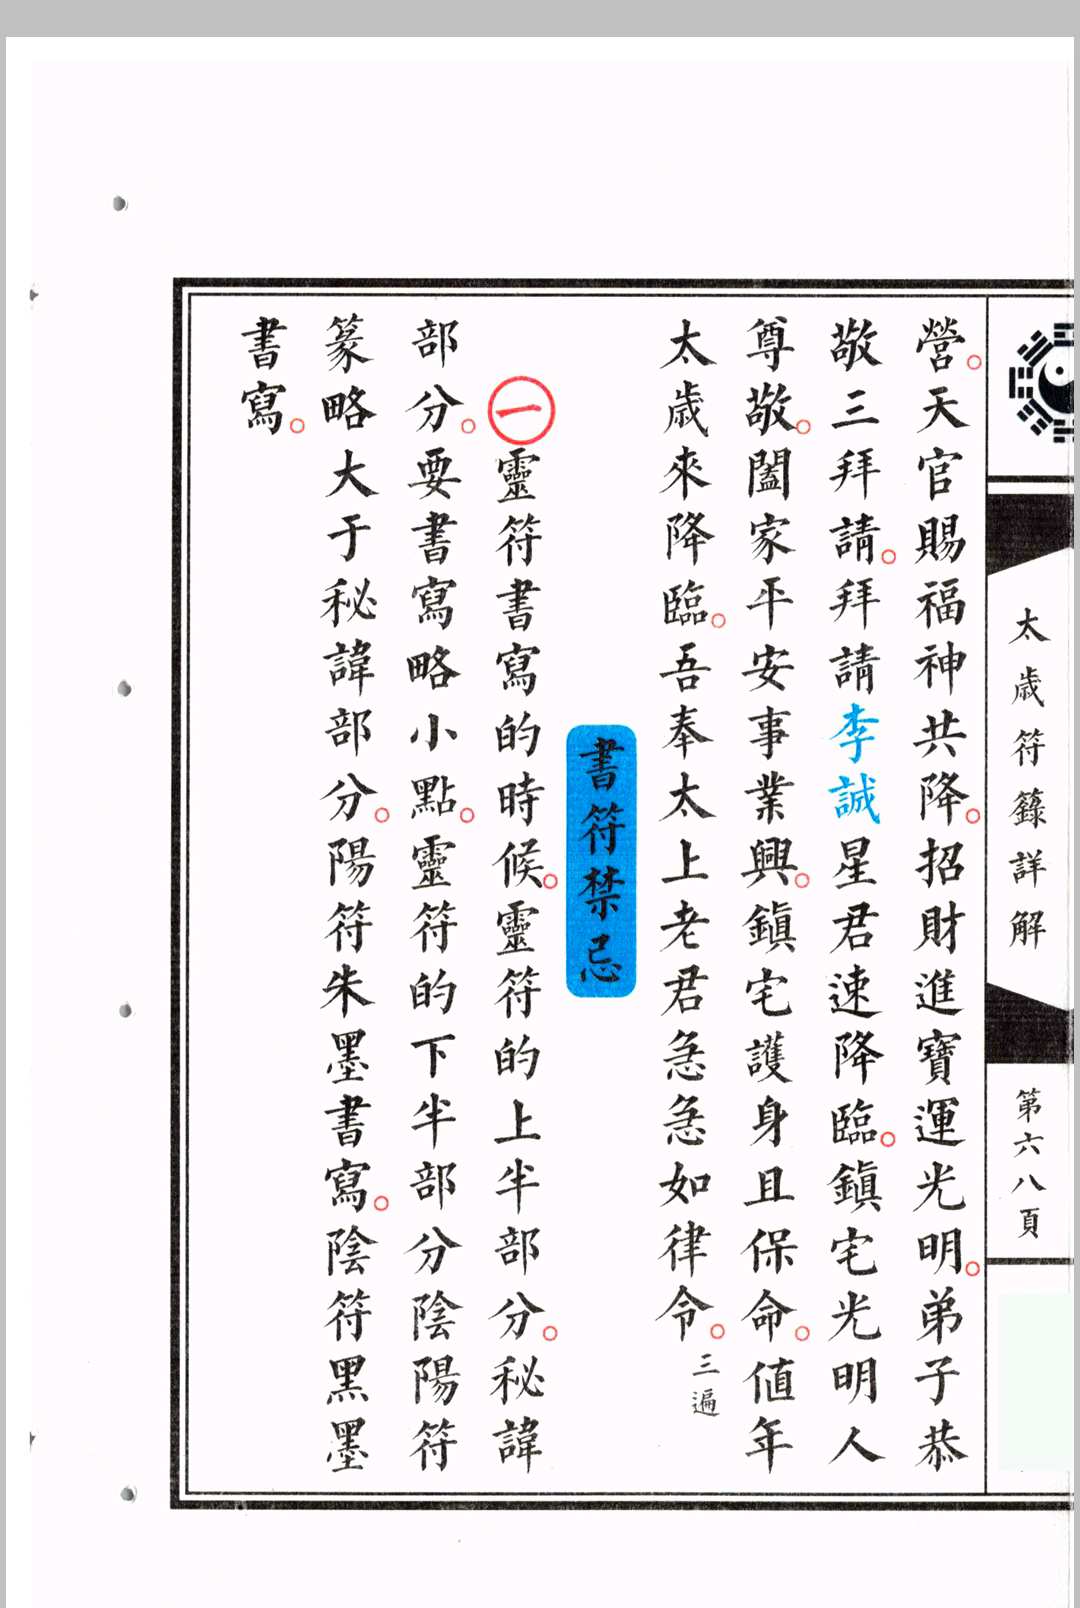 太歲符籙詳解
第六八頁
營。天官賜福神共降。招財進寶運光明。弟子恭
敬三拜請。拜請李誠星君速降臨。鎮宅光明人
尊敬。闔家平安事業興。鎮宅護身且保命。値年
太歲來降臨。吾奉太上老君急急如律令。三遍
書符禁忌
一靈符書寫的時候。靈符的上半部分。秘諱
部分。要書寫略小點。靈符的下半部分陰陽符
篆略大于秘諱部分。陽符朱墨書寫。陰符黑墨
書寫。